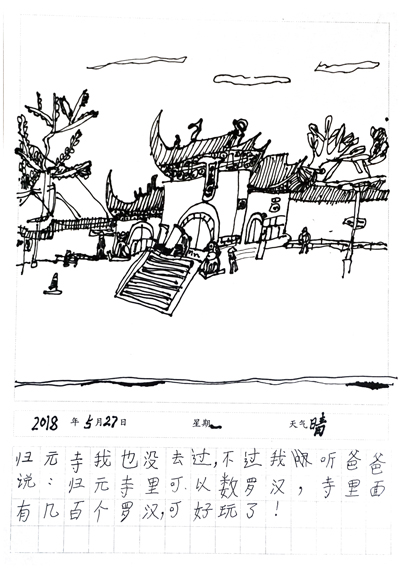 2018 年 5 月 27 日 星期一 天气 晴
归元寺我也没去过,不过我听爸爸
说：归元寺里可以数罗汉，寺里面
有几百个罗汉,可好玩了！